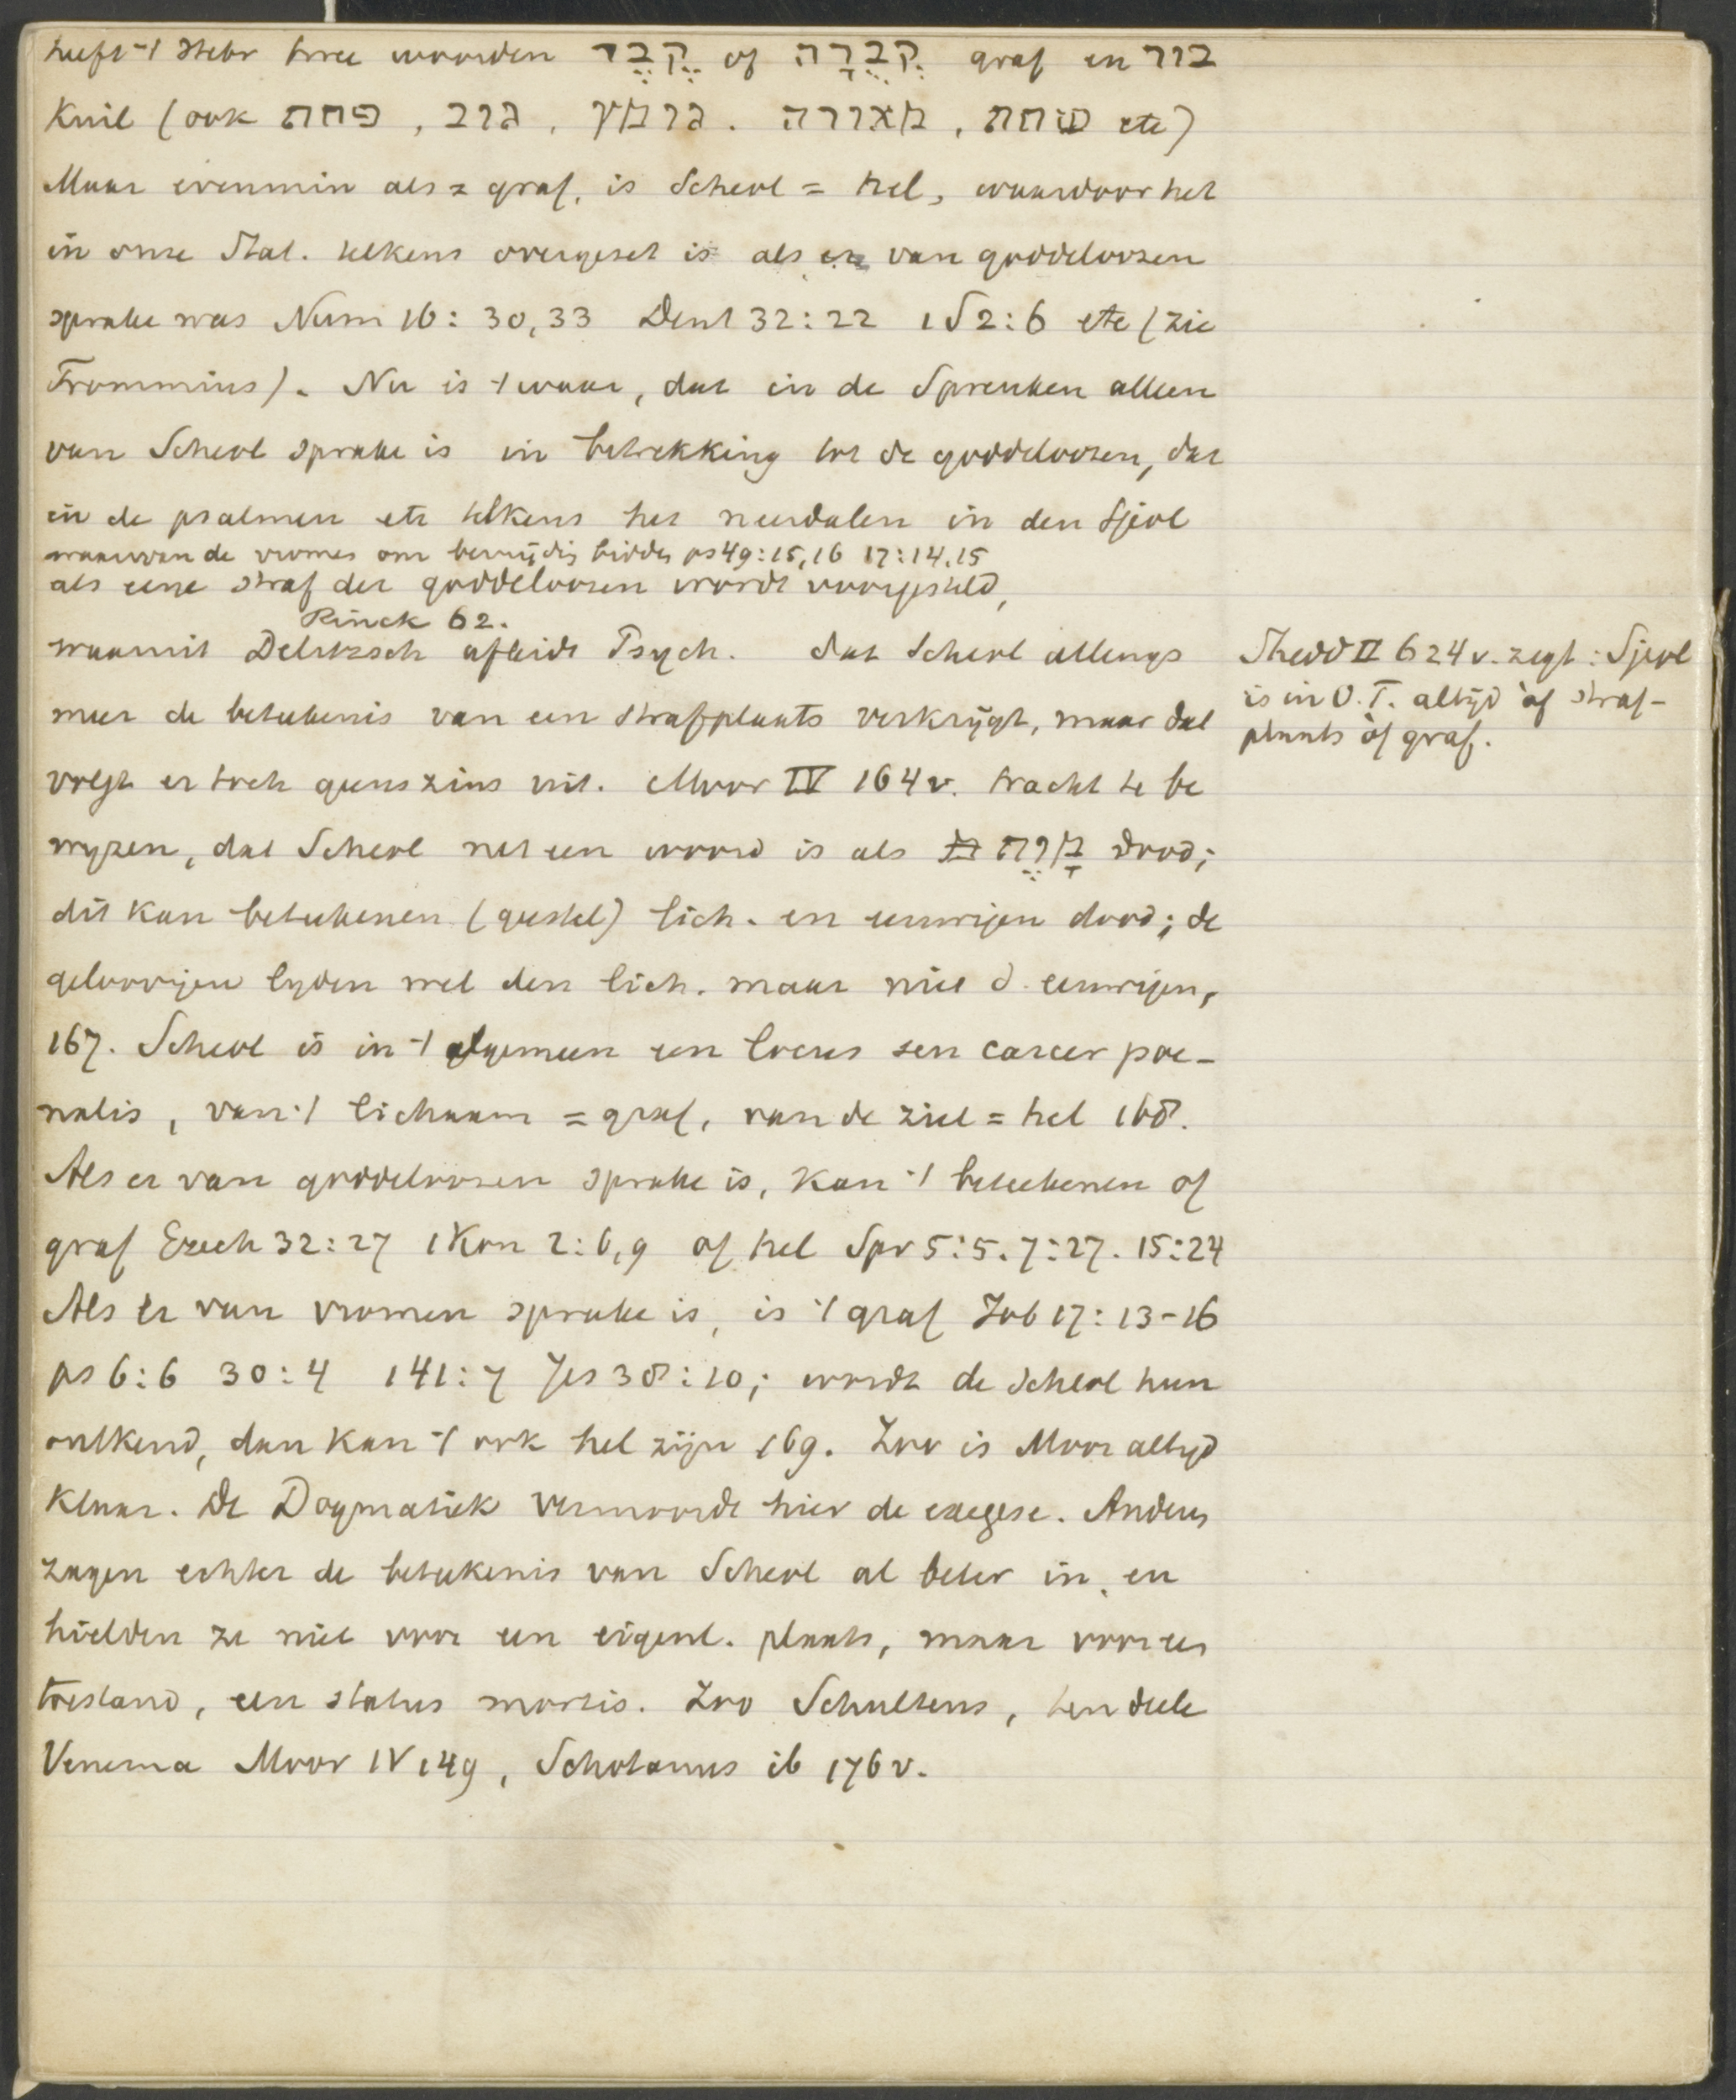 heeft 't Hebr twee woorden קֶבֶר of קְבֻרָה graf en בור
Kuil (ook פחת, גוב, גומץ. מאורה, שוחת etc)
Maar evenmin als = graf, is Scheol = hel, waardoor het
in onze Stat. telkens overgezet is als er van goddeloozen
sprake was Num 16:30,33 Deut 32:22 1S2:6 etc (zie
Trommius). Nu is 't waar, dat in de Spreuken alleen
van Scheol sprake is in betrekking tot de goddeloozen, dat
in de psalmen etc telkens het neerdalen in den Sjeol
waarvan de vromes om bevrijdig bidden ps 49:15,16 17:14,15
als eene straf der goddeloozen wordt voorgesteld,
Rinck 62.
waaruit Delitzsch afleidt Psych. dat Scheol allengs
meer de beteekenis van een strafplaats verkrijgt, maar dat
volgt er toch geenszins uit. Moor IV 164v. tracht te be
wyzen, dat Scheol net een woord is als מָוֶת dood;
dit kan beteekenen (geestel) lich. en eeuwigen dood; de
geloovigen lyden wel den lich. maar niet d. eeuwigen,
167. Scheol is in 't algemeen een locus seu carcer poe-
nalis, van 't lichaam = graf, van de ziel = hel 168.
Als er van goddeloozen sprake is, kan 't beteekenen of
graf Ezech 32:27 1Kon 2:6,9 of hel Spr 5:5. 7:27. 15:24
Als er van vromen sprake is, is 't graf Job 17:13-16
ps 6:6 30:4 141:7 Jes 38:10; wordt de Scheol hun
ontkend, dan kan 't ook hel zijn 169. Zoo is Moor altyd
klaar. De Dogmatiek vermoordt hier de exegese. Anderen
zagen echter de beteekenis van Scheol al beter in, en
hielden ze niet voor een eigent. plaats, maar voor een
toestand, een status mortis. Zoo Schultens, ten deele
Venema Moor IV 149, Schotanus ib 176v.
Shedd II 624v. zegt: Sjeol
is in O.T. altijd òf straf-
plaats òf graf.